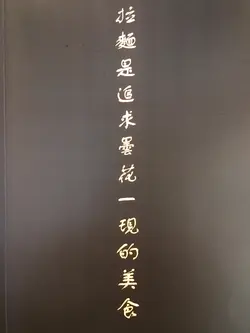 拉麵是追求曇花一現的美食